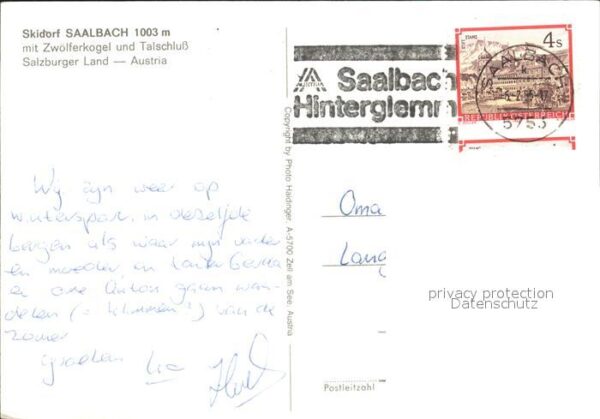 Skidorf SAALBACH 1003 m
mit Zwölferkogel und Talschluß
Salzburger Land — Austria
Wij zijn weer op
wintersport in dezelfde
bergen als waar mijn vader
en moeder, en tante Gerda
en ome Anton gaan wan-
delen (= klimmen!) van de
zomer
groeten
Copyright by Photo Haidinger, A-5700 Zell am See, Austria
AUSTRIA
Saalbach
Hinterglemm
STAMS
4s
SAALBACH
5753
REPUBLIK ÖSTERREICH
Oma
Lang
privacy protection
Datenschutz
Postleitzahl